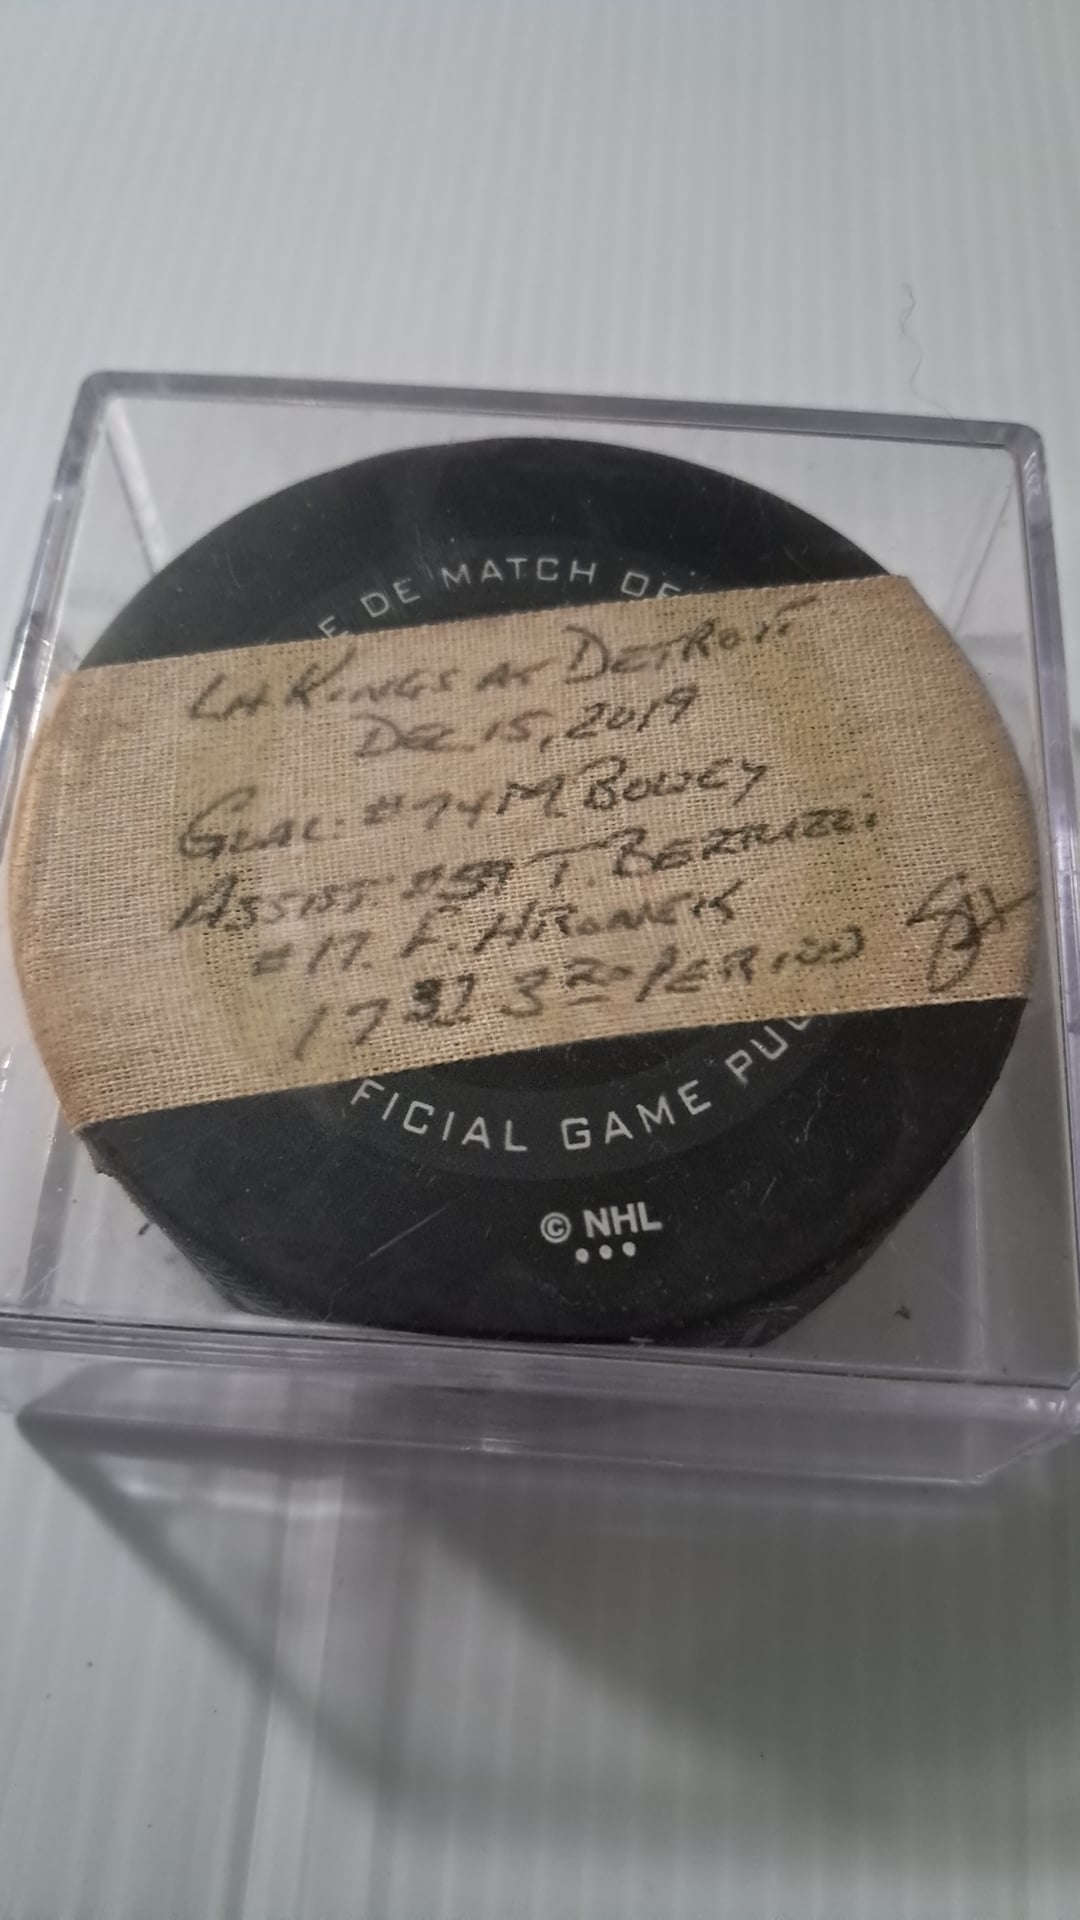 E DE MATCH OF
LA. KINGS AT DETROIT
DEC. 15, 2019
GOAL: #74 M. BOWEY
ASSIST #59 T. BERTUZZI
#17. F. HRONEK
17 32 3RD PERIOD
FICIAL GAME PUC
© NHL